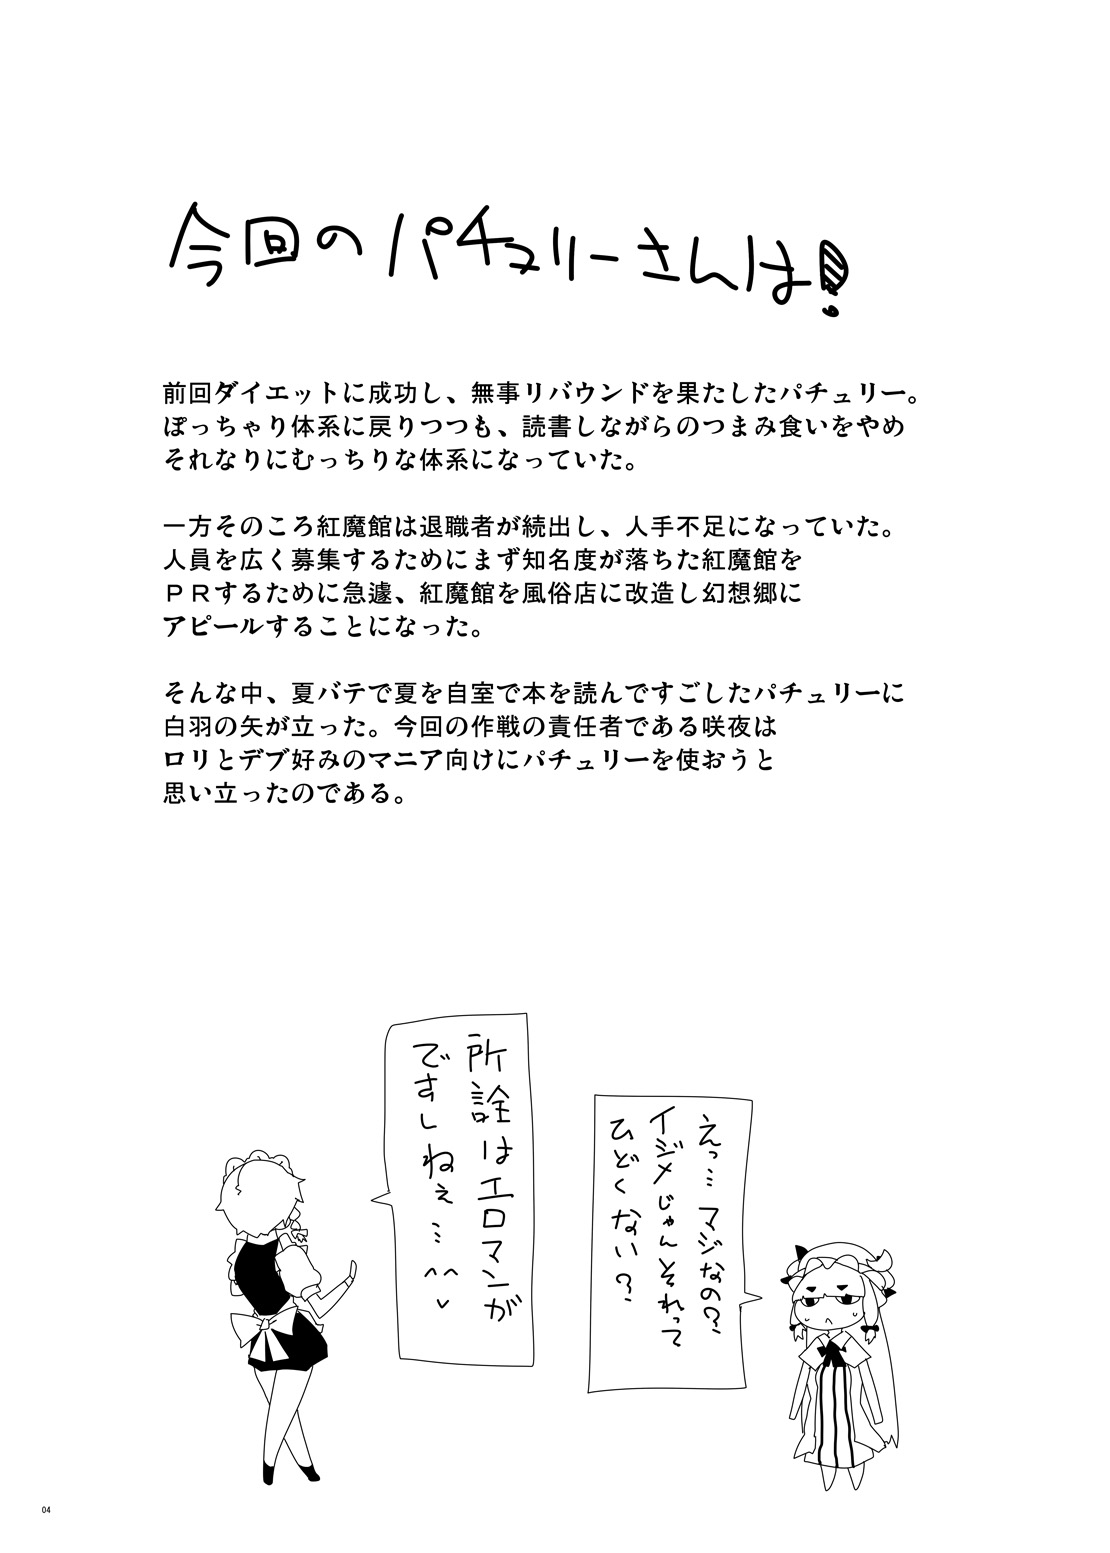 今回のパチュリーさんは!
前回ダイエットに成功し、無事リバウンドを果たしたパチュリー。
ぽっちゃり体系に戻りつつも、読書しながらのつまみ食いをやめ
それなりにむっちりな体系になっていた。
一方そのころ紅魔館は退職者が続出し、人手不足になっていた。
人員を広く募集するためにまず知名度が落ちた紅魔館を
ＰＲするために急遽、紅魔館を風俗店に改造し幻想郷に
アピールすることになった。
そんな中、夏バテで夏を自室で本を読んですごしたパチュリーに
白羽の矢が立った。今回の作戦の責任者である咲夜は
ロリとデブ好みのマニア向けにパチュリーを使おうと
思い立ったのである。
えっ…マジなの?
イジメじゃんそれって
ひどくない?
所詮はエロマンが
ですしねぇ…^^
04